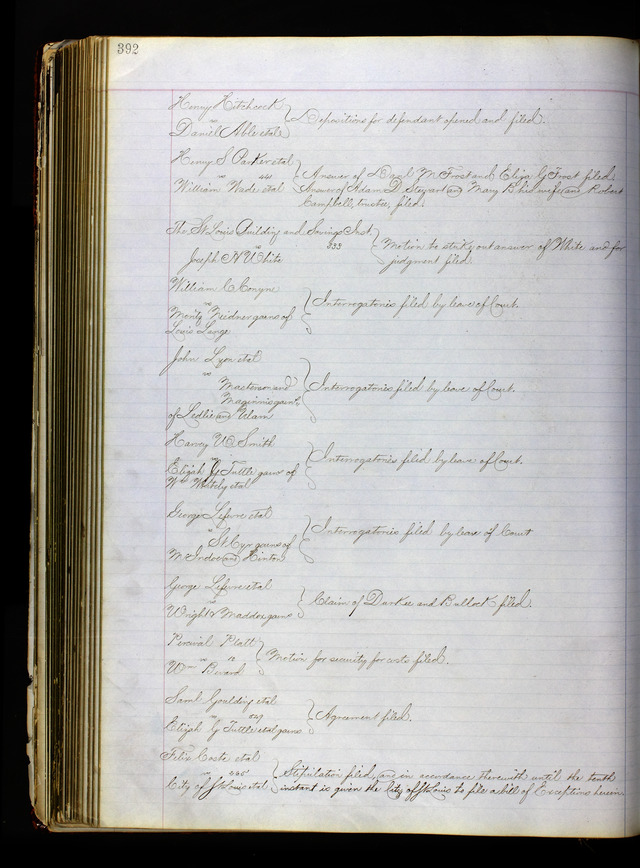 392
Henry Hitchcock
vs
Daniel Able etal
Depositions for defendant opened and filed.
Henry S Parker etal
vs 441
William Wade etal
Answer of M Frost and Eliza G Frost filed.
Answer of Adam D Stewart and Mary B his wife and Robert
Campbell, trustee, filed.
The St Louis Building and Savings Inst
vs 333
Joseph H White
Motion to strike out answer of White and for
judgment filed.
William C Conyne
vs
Moritz garns of
Louis Lange
Interrogatories filed by leave of Court.
John Lyon etal
vs
Masterson and
Maginnis garns
of Ledlie and Ulam
Interrogatories filed by leave of Court.
Harvey Smith
vs
Elijah G Tuttle garns of
Wm etal
Interrogatories filed by leave of Court.
George Lefevre etal
vs
St Cyr garns of
McIndoe and Hinton
Interrogatories filed by leave of Court
George Lefevre etal
vs
Wright & Maddox garns
Claim of Durkee and Bullock filed.
Percival Platt
vs
Wm Berard
Motion for security for costs filed.
Saml Goulding etal
vs
Elijah G Tuttle etal garns
Agreement filed.
Felix Coste etal
vs
City of St Louis etal
Stipulation filed, and in accordance therewith until the tenth
instant is given the City of St Louis to file a bill of Exceptions herein.